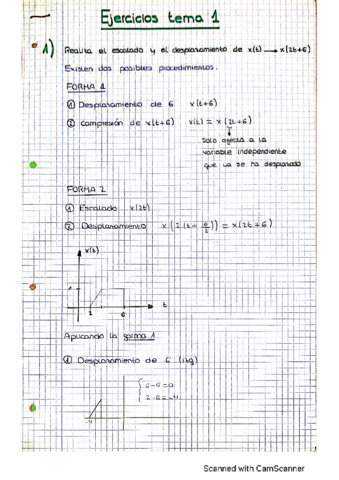 Ejercicios tema 1
1) Realiza el escalado y el desplazamiento de x(t) → x(2t+6)
Existen dos posibles procedimientos.
FORMA 1
① Desplazamiento de 6 x(t+6)
② Compresión de x(t+6) x(t) = x(2t+6)
Solo afecta a la
variable independiente
que ya se ha desplazado
FORMA 2
① Escalado x(2t)
② Desplazamiento x(2(t+6/2)) = x(2t+6)
x(t)
1
2 6 t
Aplicando la forma 1
① Desplazamiento de 6 (izq)
6-6=0
2-6=-4
-4
Scanned with CamScanner